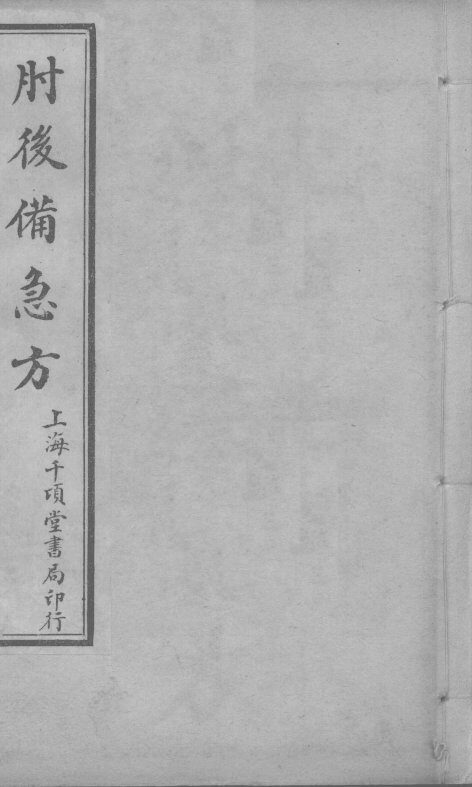 肘後備急方
上海千頃堂書局印行